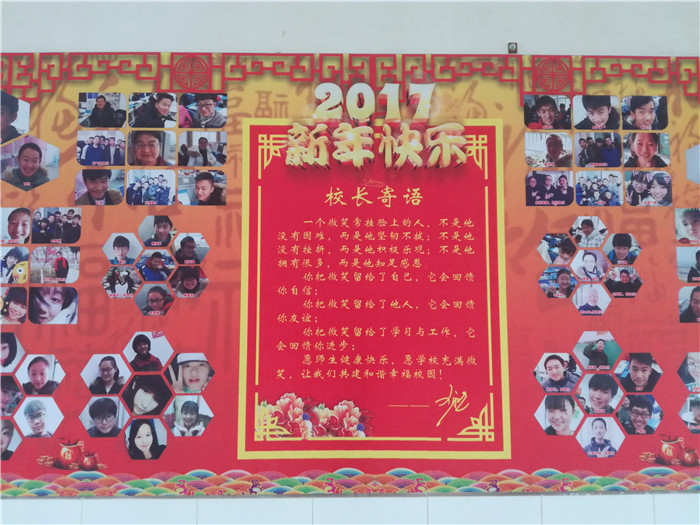 2017
新年快乐
校长寄语
一个微笑常挂脸上的人，不是他
没有困难，而是他坚韧不拔；不是他
没有挫折，而是他积极乐观；不是他
拥有很多，而是他知足感恩
你把微笑留给了自己，它会回馈
你自信；
你把微笑留给了他人，它会回馈
你友谊；
你把微笑留给了学习与工作，它
会回馈你进步；
愿师生健康快乐，愿学校充满微
笑，让我们共建和谐幸福校园！